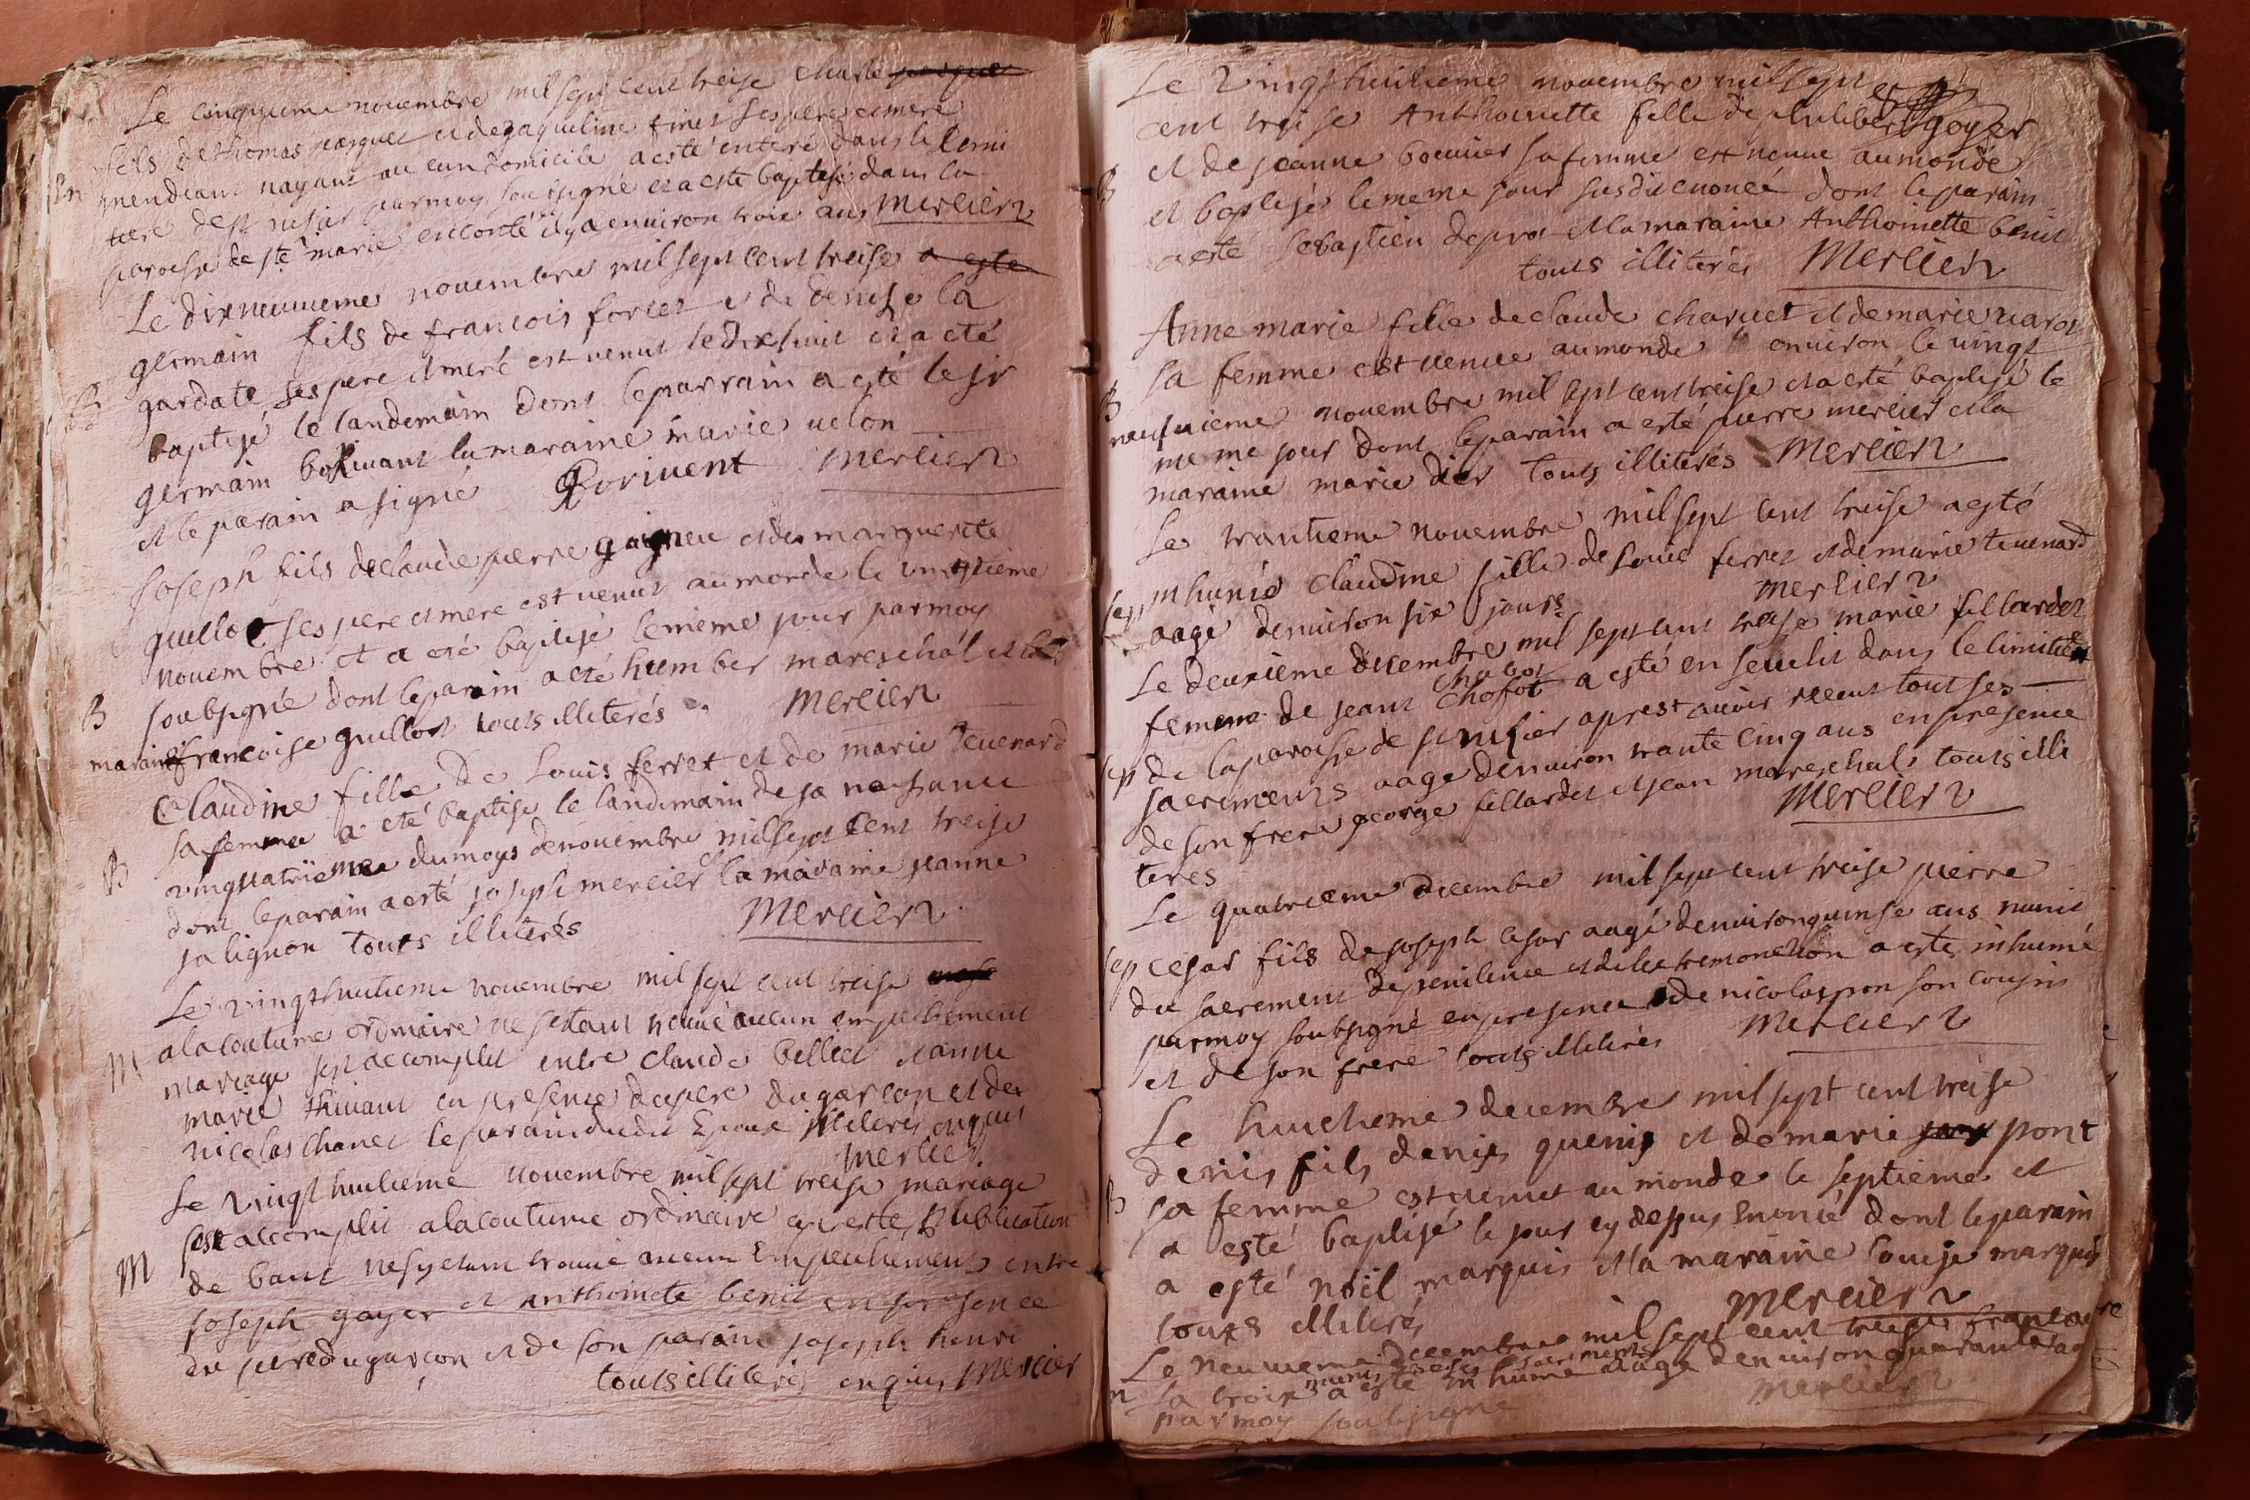 Le cinquieme novembre mil sept cent treise charle
fils de thomas parquet et de jaqueline finet ses pere et mere
mendiant nayant aucun domicile a esté enteré dans le cemi
tiere de st nisier par moy soubsigné et a esté baptisé dans la
paroisse de ste marie en conte il y a environ trois ans Mercier
Le dixneuvieme novembre mil sept cent treise a este
germain fils de francois foret et de denise la
gardate ses pere et mere est venut le dixhuit et a eté
B
baptisé le landemain dont le parrain a esté le sr
germain borivant la maraine marie velon
et le parain a signé Borivent Mercier
Joseph fils de claude pierre gaigneu et de marguerite
guillot ses pere et mere est venut au monde le vingtieme
novembre et a eté baptisé le meme jour par moy
B
soubsigné dont le parain a eté humber mareschal et la
maraine francoise guillot touts illiterés Mercier
Claudine fille de Louis ferret et de marie tevenard
sa femme a eté baptise le landemain de sa naissance
B
vingquatrieme du moys de novembre mil sept cent treise
dont le parain a esté joseph mercier et la maraine jeanne
salignon touts illiterés Mercier
Le vingthuitieme novembre mil sept cent treise
a la coutume ordinaire ne sestant trouvé aucun empechement
M
mariage sest accomplit entre claude billiet et anne
marie thivant en presence du pere du garcon et de
nicolas chanet le parain du dit Epoux illiteres enquis
Mercier
Le vingt huitieme novembre mil sept treise mariage
sest accomplit a la coutume ordinaire apres les publication
M
de bant ne sy etant trouvé aucun Empechement entre
joseph goyer et anthoinete benit en presence
du pere du garcon et de son parain joseph henri
touts illiterés enquis Mercier
Le vingthuitieme novembre mil sept
cent treise Anthoinette fille de philibert goyer
et de jeanne bouvier sa femme est venue au monde
B
et baptisé le meme jour susdit enoncé dont le parain
a esté sebastien depra et la maraine Anthoinette benit
touts illiterés Mercier
Anne marie fille de claude charvet et de marie varot
sa femme est venue au monde environ le vingt
B
neufvieme novembre mil sept cent treise et a esté baptisé le
meme jour dont le parain a esté pierre mercier et la
maraine marie dier touts illiterés Mercier
Le trantieme novembre mil sept cent treise a esté
sep
inhumé claudine fille de Louis ferret et de marie tevenard
aagé denviron six jours Mercier
Le deuxieme decembre mil sept cent treise marie fillardet
chabot
femme de jean chofot a esté en sevelit dans le cimitiere
sep
de la paroisse de st nisier aprest avoir receut tout ses
sacrements aage denviron trante cinq ans en presence
de son frere george fillardet et jean mareschal touts illi
teres Mercier
Le quatrieme decembre mil sept cent treise pierre
sep
césar fils de joseph cesar aagé denviron quinse ans munit
du sacrement de penitence et de lextremonction a esté inhumé
par moy soubsigné en presence de nicolas pon son cousin
et de son frere touts illiterés Mercier
Le huictieme decembre mil sept cent treise
denis fils denis quenis et de marie pont
B
sa femme est venut au monde le septieme et
a esté baptisé le jour cy dessus enoncé dont le parain
a esté noïl marquis et la maraine louise marquis
touts illiterés Mercier
Le neuvieme decembre mil sept cent treise francoise
munis de ses sacrements
la croix a esté inhume aagé denviron quarante ans
par moy soubsigné Mercier